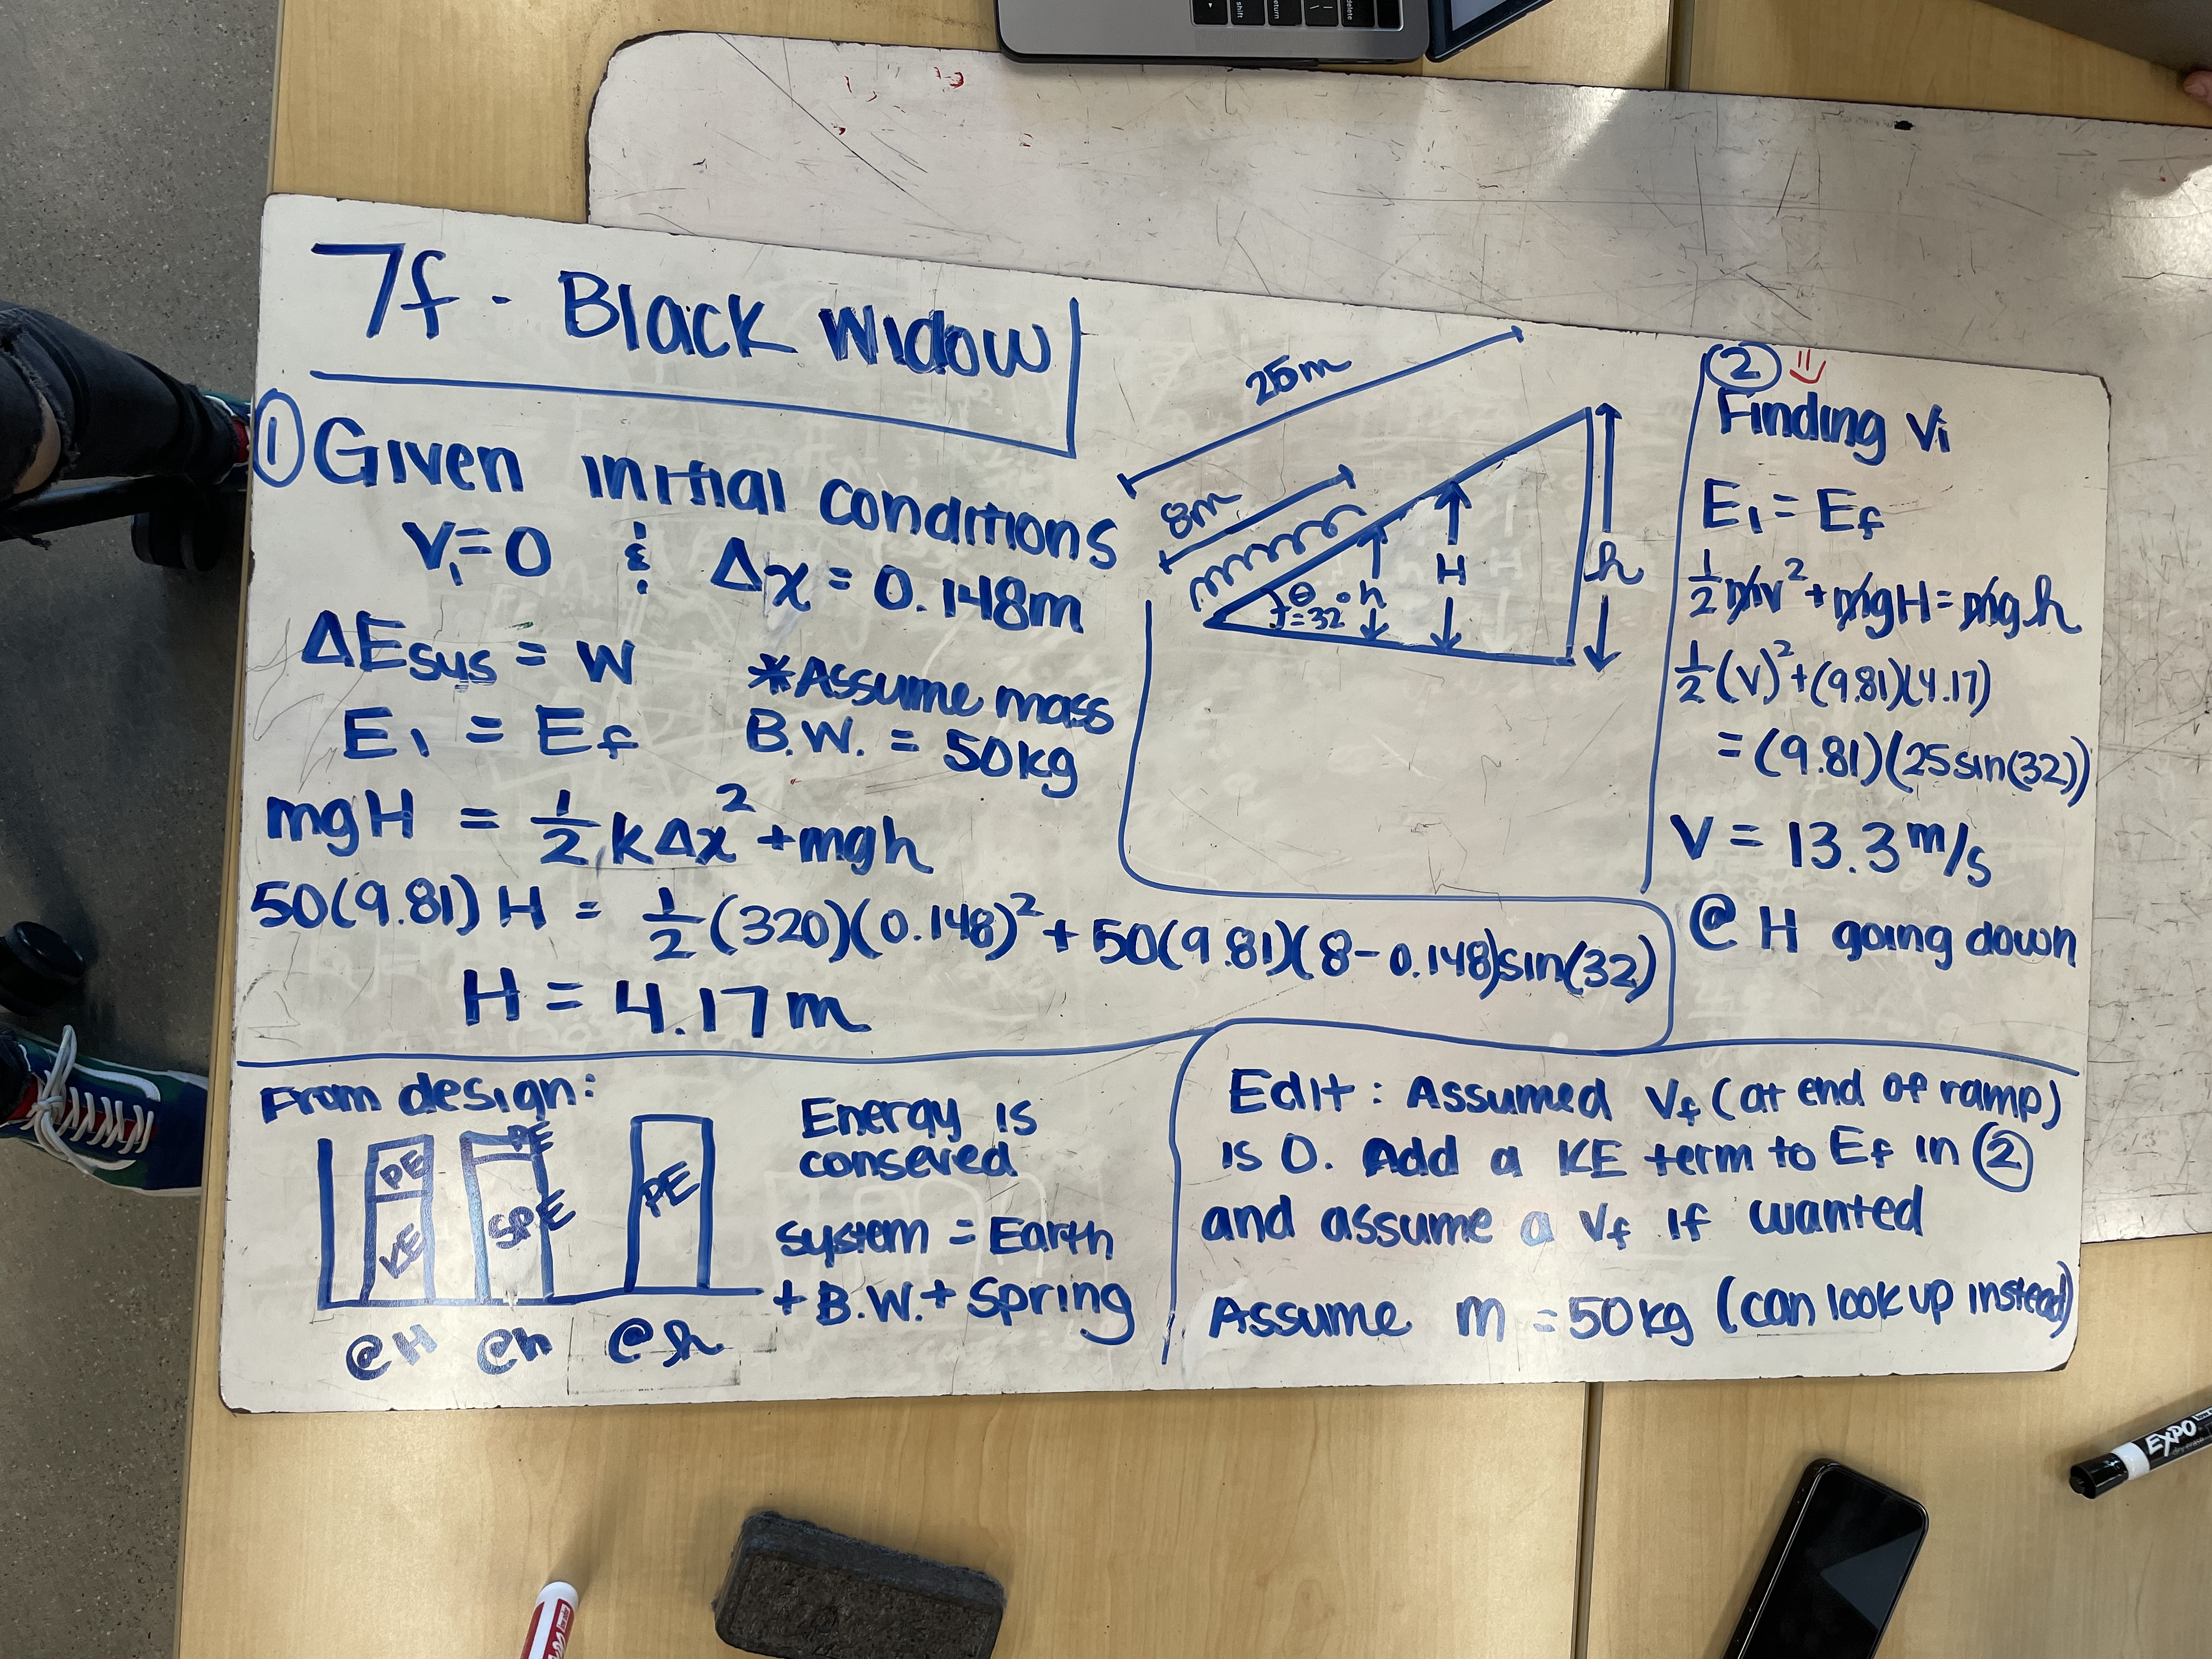 7f - Black Widow
① Given initial conditions
Vᵢ=0 & Δx = 0.148m
ΔEsys = W
*Assume mass
B.W. = 50kg
Eᵢ = E_f
mgH = ½ kΔx² + mgh
50(9.81) H = ½ (320)(0.148)² + 50(9.81)(8-0.148)sin(32)
H = 4.17m
25m
8m
θ
=32°
h
H
h
②
Finding Vᵢ
Eᵢ = E_f
½ mv² + mgH = mgh
½ (v)² + (9.81)(4.17)
= (9.81)(25sin(32))
V = 13.3 m/s
@ H going down
From design:
PE
KE
PE
SPE
PE
@H @h @h
Energy is
conseved
system = Earth
+ B.W. + Spring
Edit: Assumed V_f (at end of ramp)
is 0. Add a KE term to E_f in ②
and assume a V_f if wanted
Assume m = 50kg (can look up instead)
EXPO
shift
return
delete